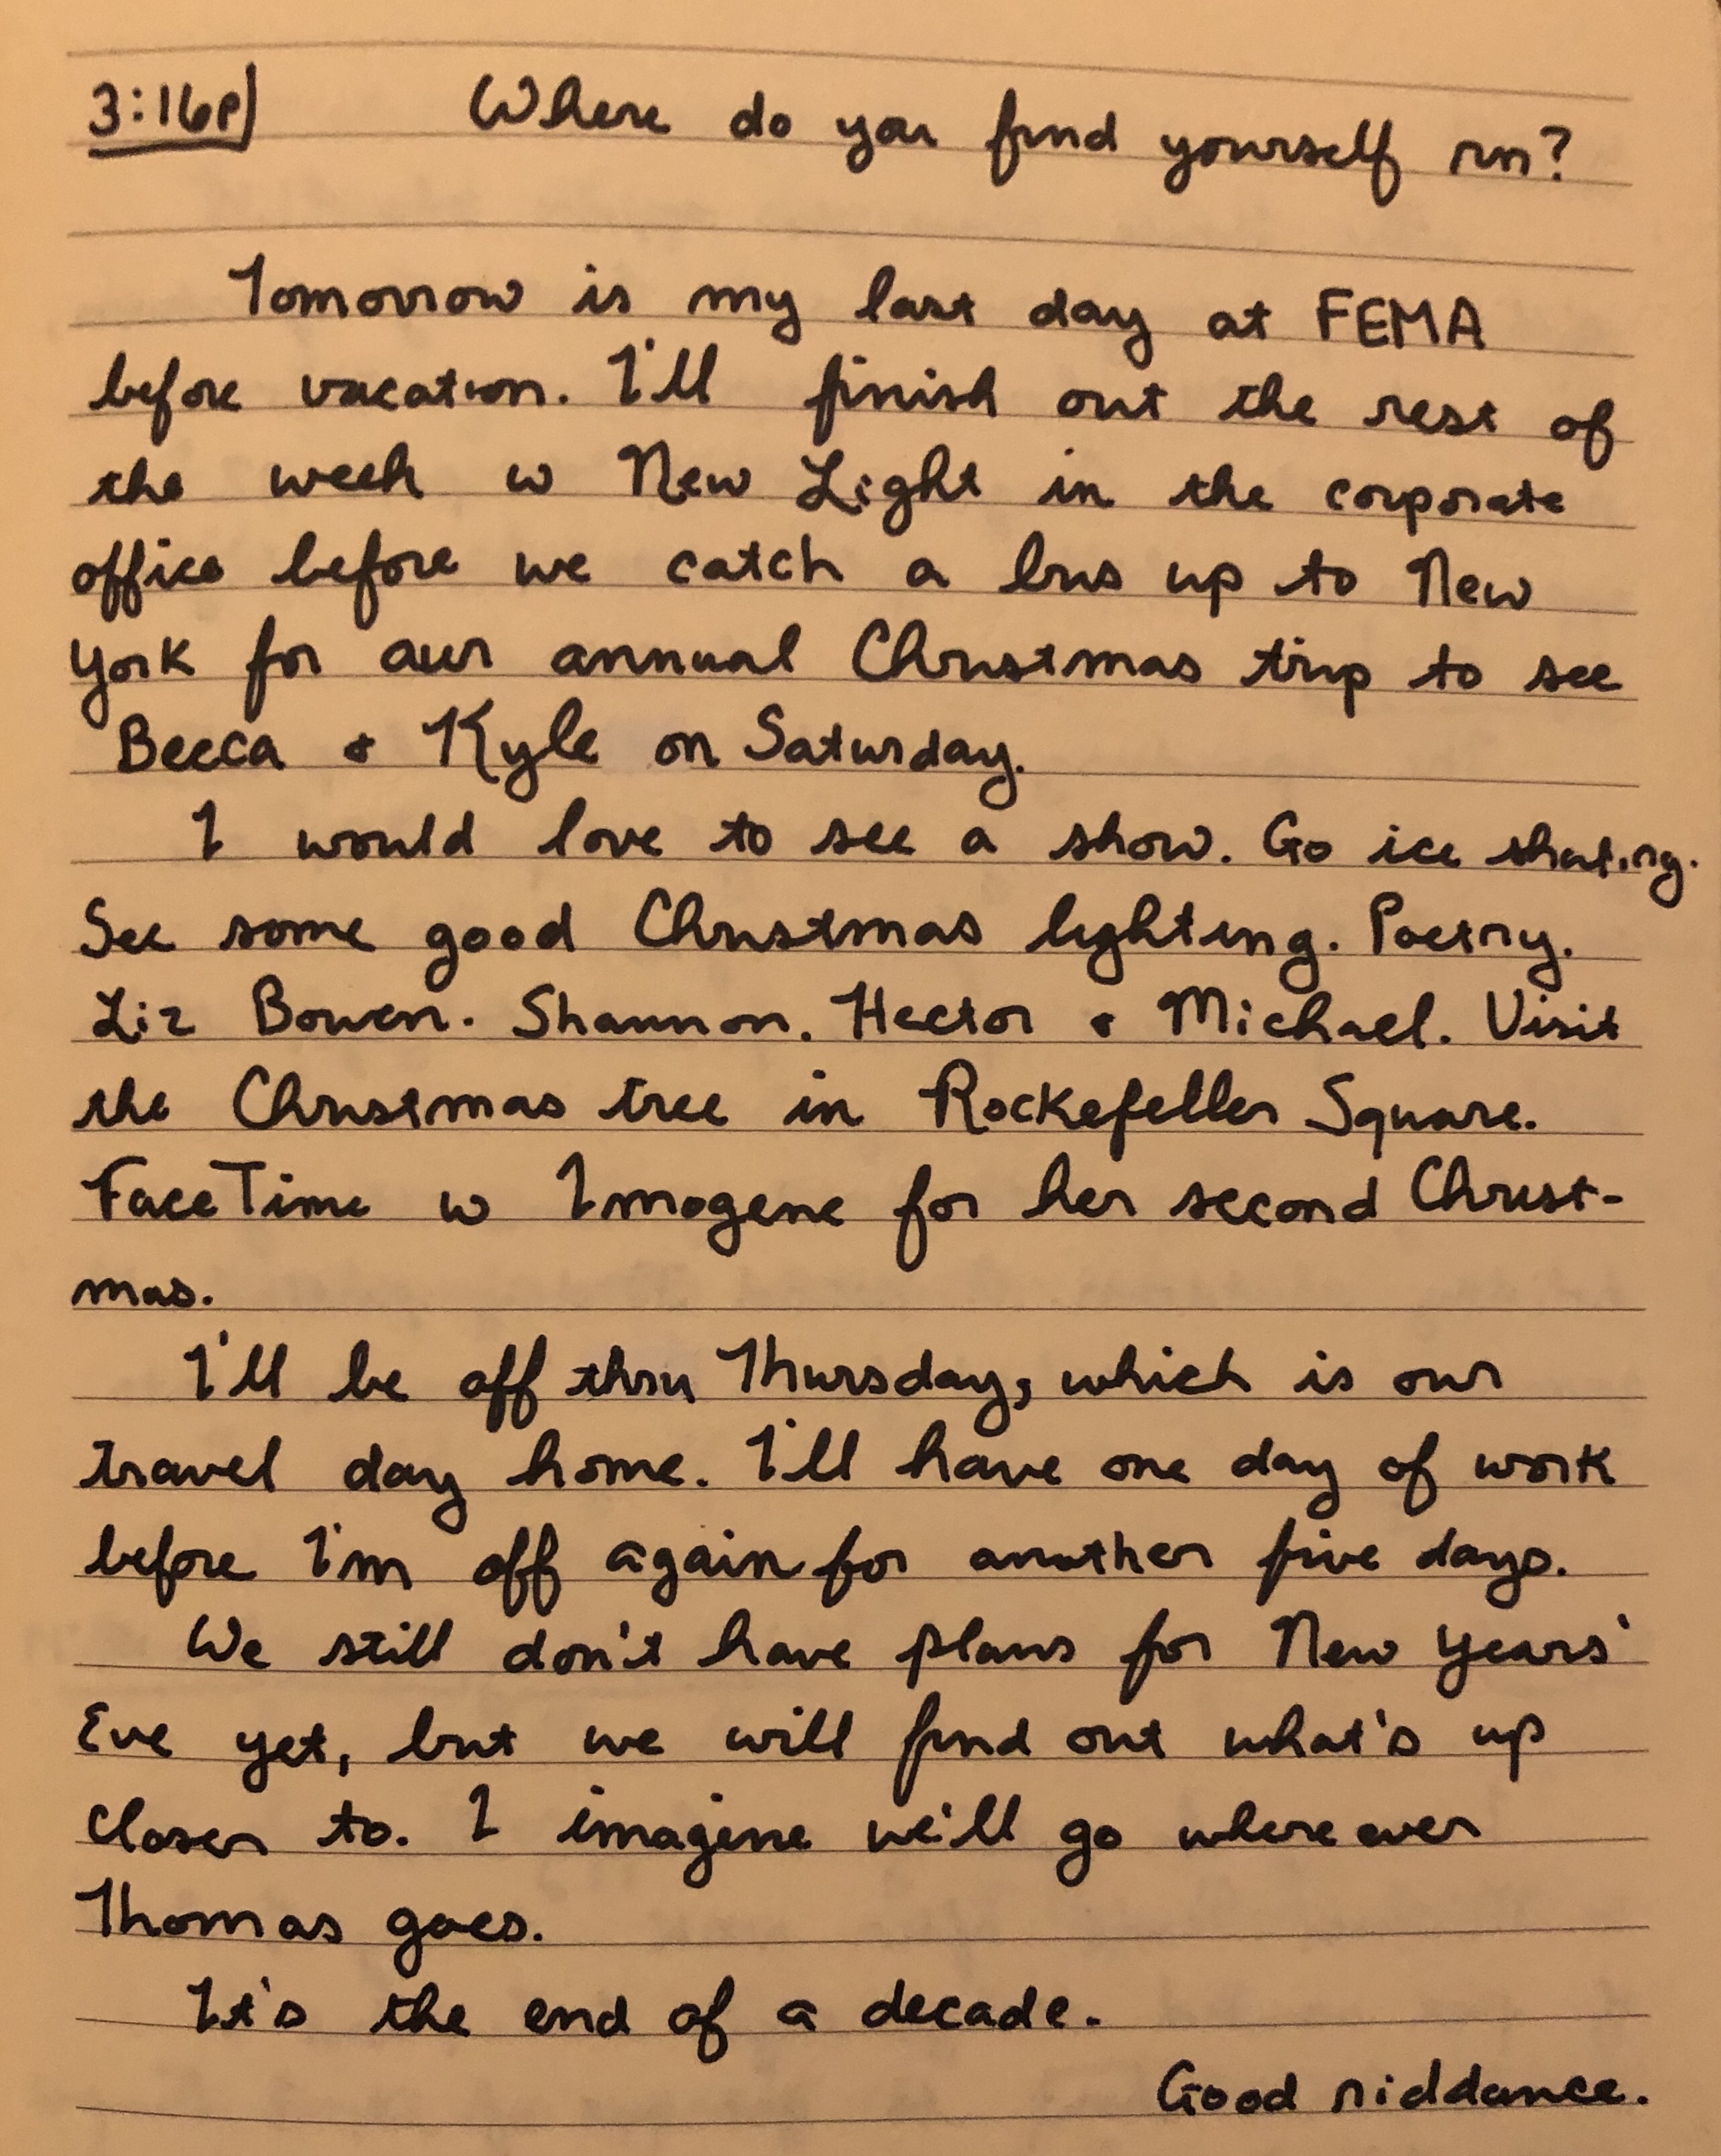 3:16P Where do you find yourself rn?
Tomorrow is my last day at FEMA
before vacation. I'll finish out the rest of
the week w New Light in the corporate
office before we catch a bus up to New
York for our annual Christmas trip to see
Becca & Kyle on Saturday.
I would love to see a show. Go ice skating.
See some good Christmas lighting. Poetry.
Liz Bowen. Shannon. Hector & Michael. Visit
the Christmas tree in Rockefeller Square.
FaceTime w Imogene for her second Christ-
mas.
I'll be off thru Thursday, which is our
travel day home. I'll have one day of work
before I'm off again for another five days.
We still don't have plans for New Years'
Eve yet, but we will find out what's up
closer to. I imagine we'll go where ever
Thomas goes.
It's the end of a decade.
Good riddance.